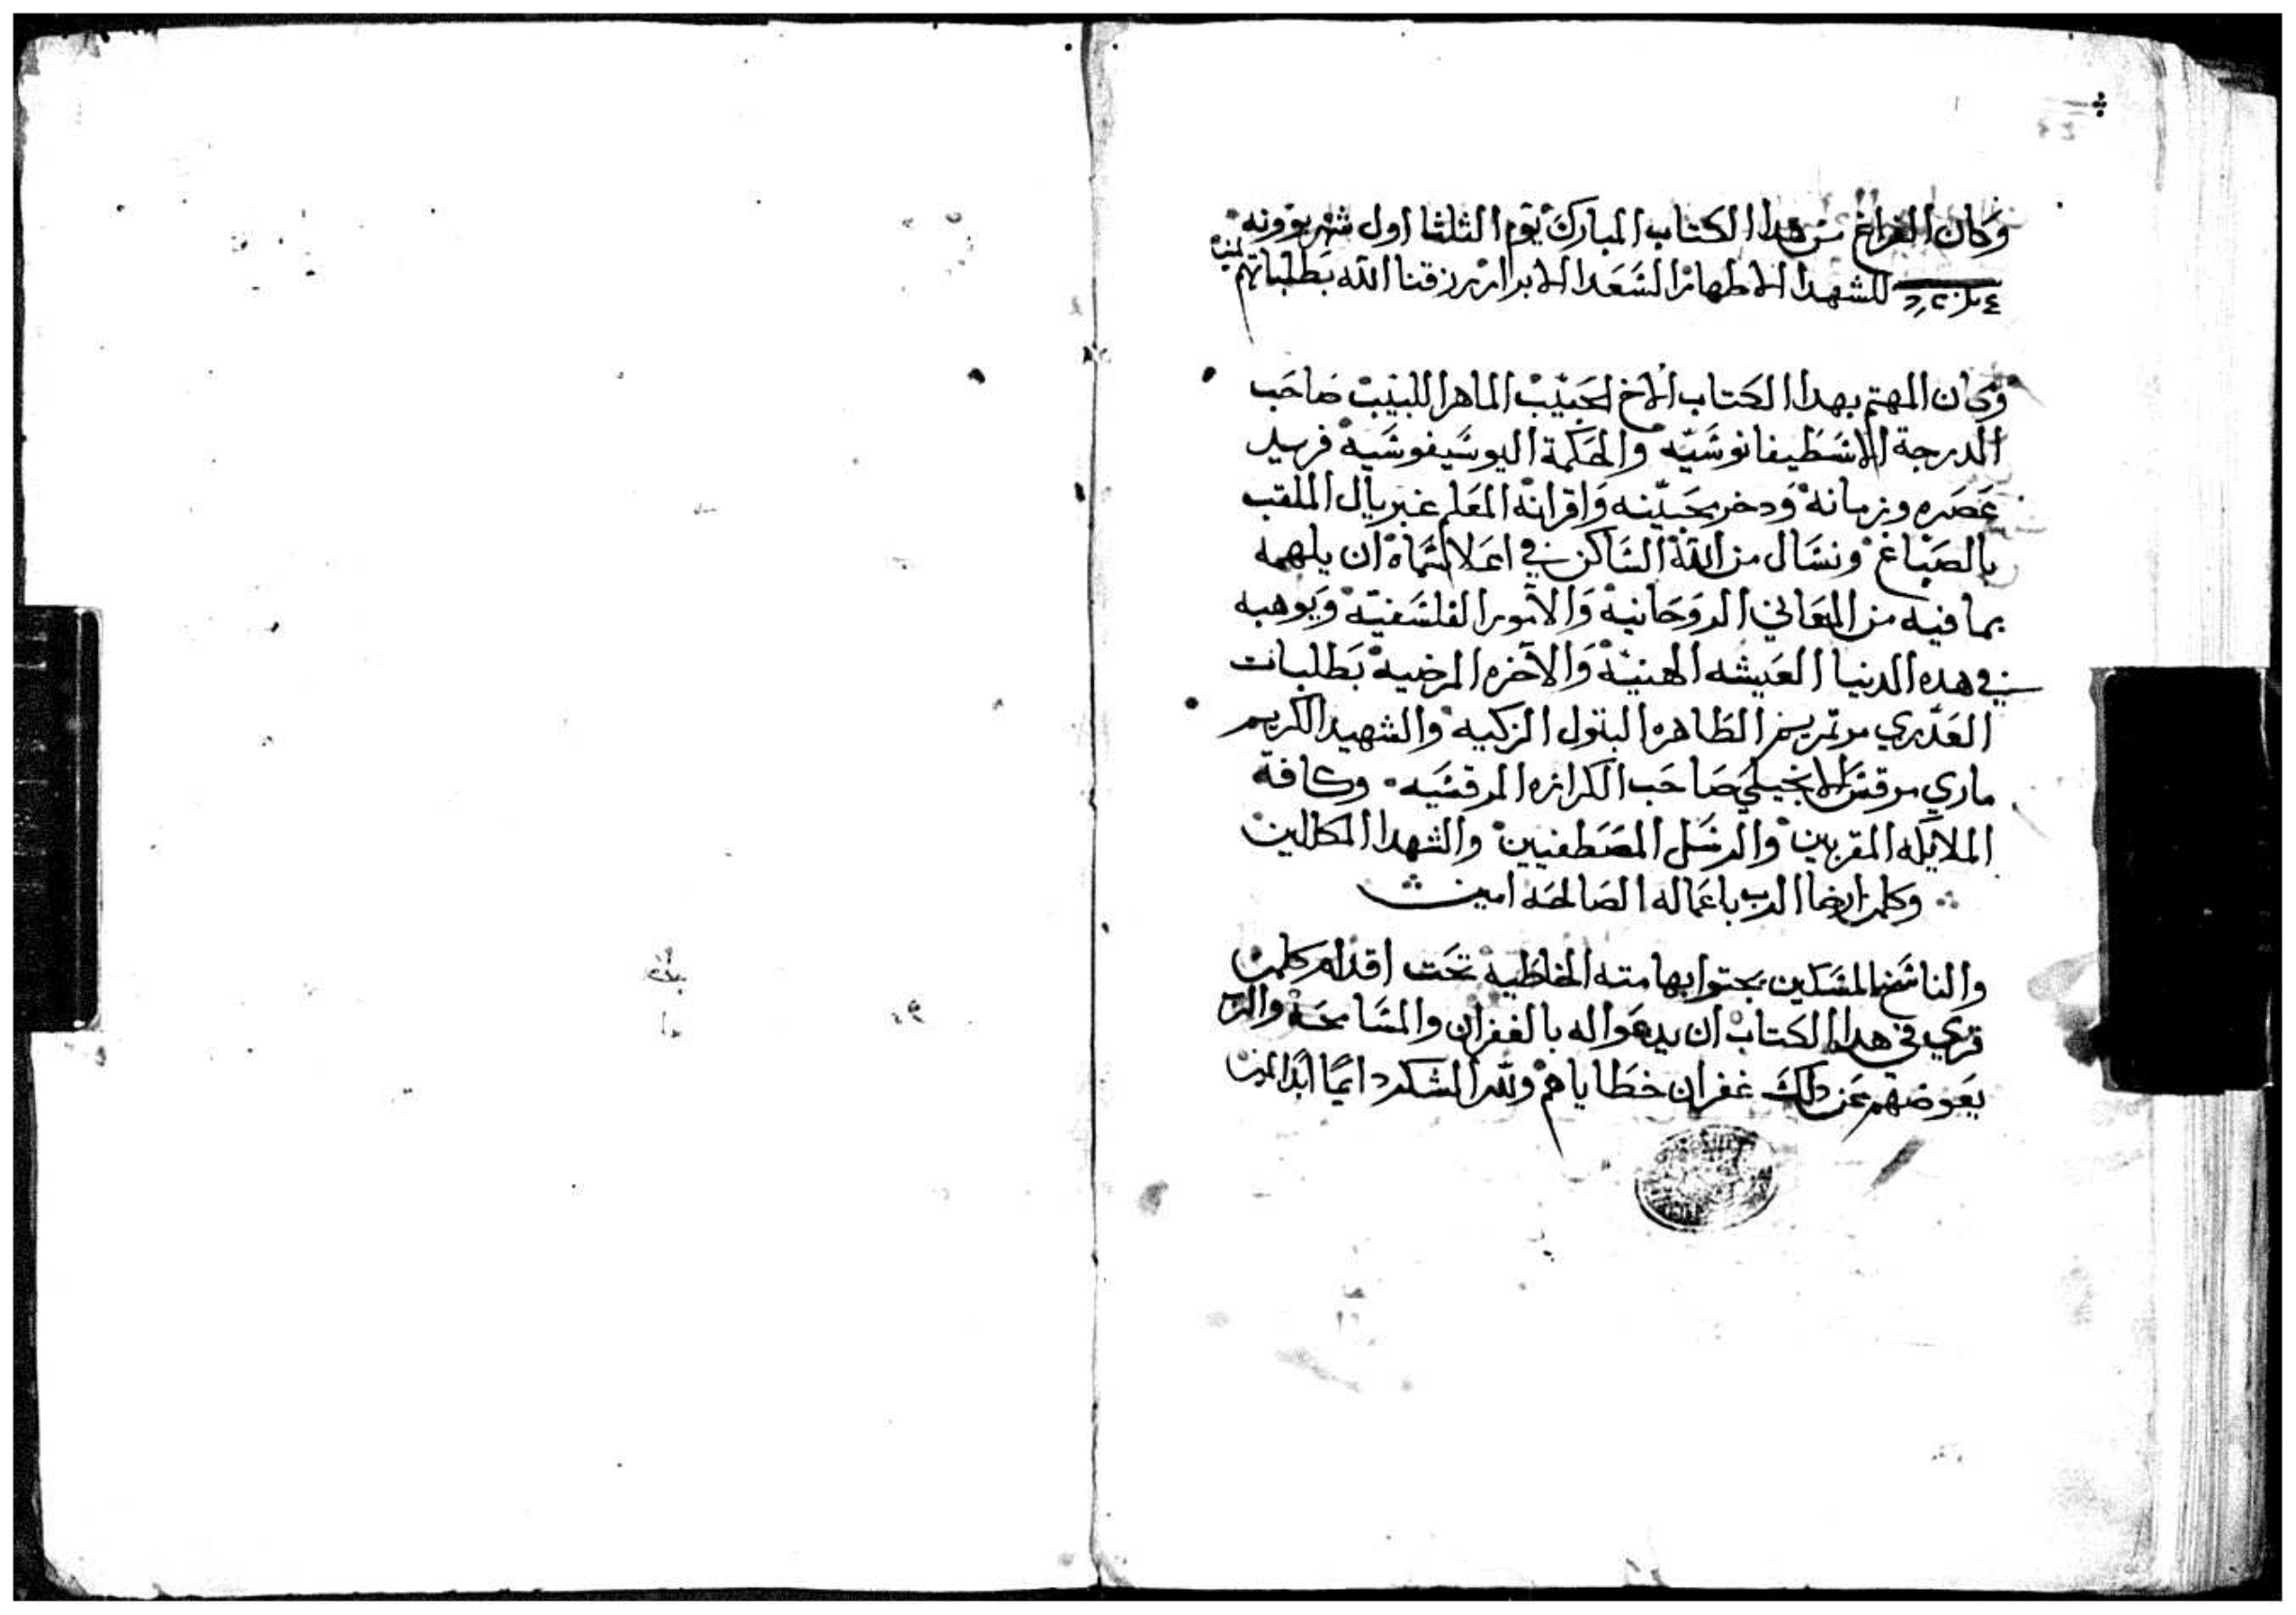 وكان الفراغ من هدا الكتاب المبارك يوم الثلثا اول شهر بوونه
للشهدا الاطهار السعدا الابرار رزقنا الله بطلباتهم امين
وكان المهتم بهدا الكتاب الاخ الحبيب الماهر اللبيب صاحب
الدرجة الاسطيفانوسيه والحكمة اليوسيفوسيه فريد
عصره وزمانه ودخر محبينه واقرانه المعلم غبريال الملقب
بالصباغ ونسال من الله الساكن في اعلا سماه ان يلهمه
بما فيه من المعاني الروحانية والامور الفلسفية ويوهبه
في هده الدنيا العيشه الهنية والاخره المرضية بطلبات
العدري مرتمريم الطاهره البتول الزكيه والشهيد الكريم
ماري مرقس الانجيلي صاحب الكرازه المرقسيه وكافة
الملايكه المقربين والرسل المصطفيين والشهدا المكللين
وكلمن ارضا الرب باعماله الصالحه امين
والناسخ المسكين يجتوا بهامته الخاطية تحت اقدام كلمن
قري في هدا الكتاب ان يدعوا له بالغفران والمسامحة والرب
يعوضهم عن دلك غفران خطاياهم ولله الشكر دايمًا ابدا امين